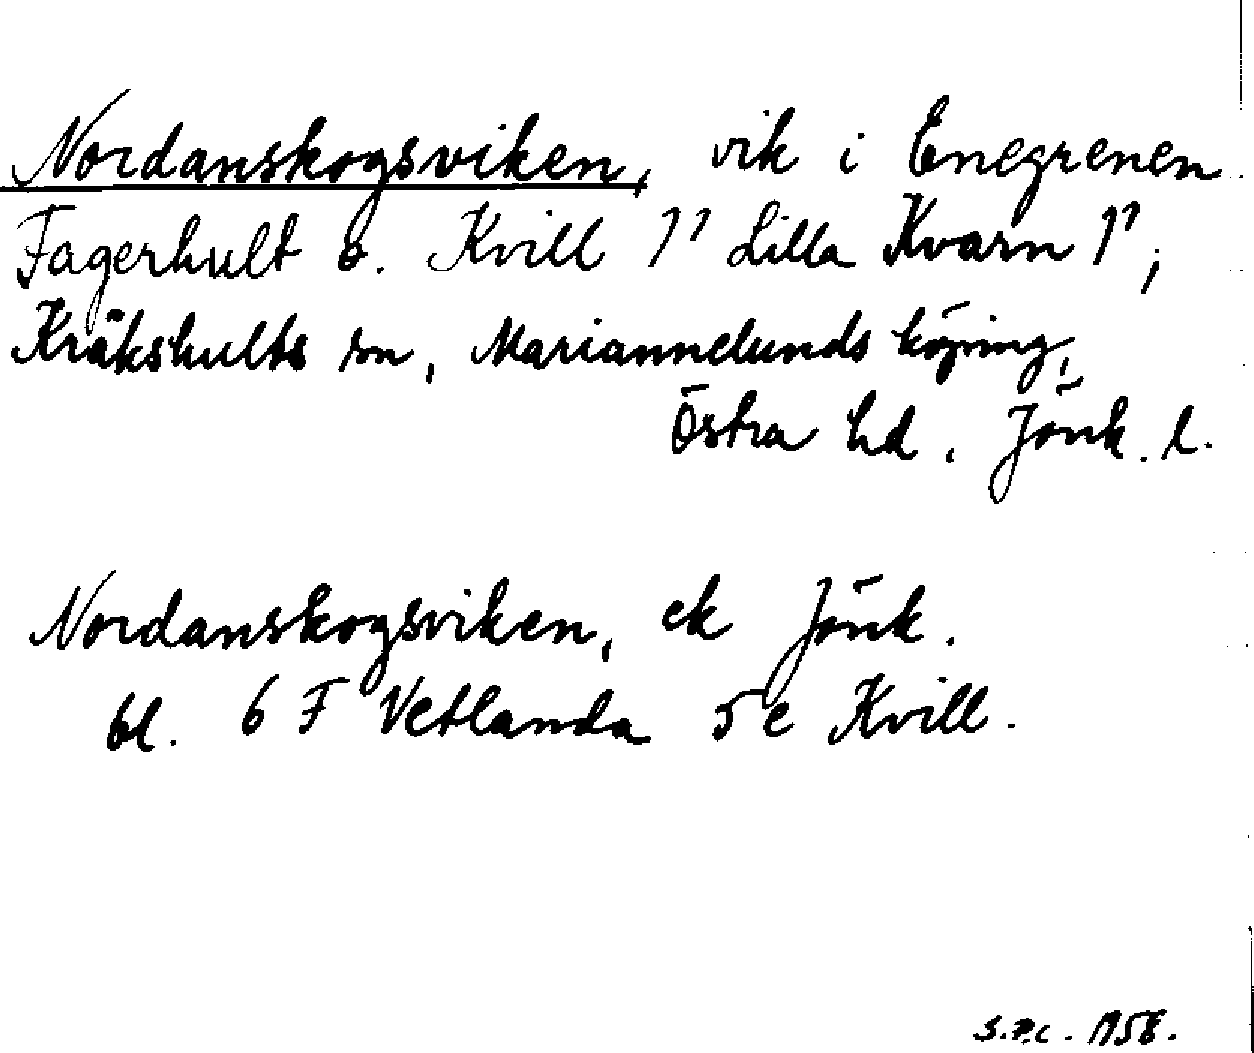 Nordanskogsviken, vik i Enegrenen.
Fagerhult o. Kvill 1⁷ Lilla Kvarn 1⁷,
Kråkshults sn, Mariannelunds köping,
Östra hd. Jönk. l.
Nordanskogsviken, ek Jönk.
bl. 6 F Vetlanda 5 e Kvill.
S.P.C. 1958.